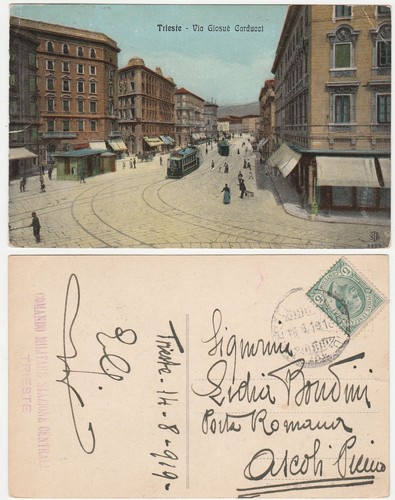 Trieste - Via Giosuè Carducci
COMANDO MILITARE STAZIONE CENTRALE
TRIESTE
Trieste - 14-8-919
Signorina
Lidia Bondini
Porta Romana
Ascoli Piceno